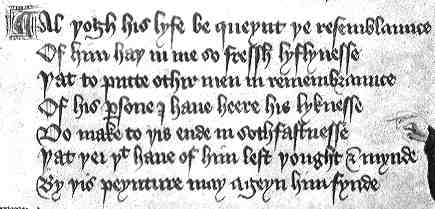 Al yogh his lyfe be queynt ye resemblaunce
Of him hay in me so fressh lyflynesse
Yat to putte othir men in remembraunce
Of his ꝑsone I haue heere his lyknesse
Do make to yis ende in sothfastnesse
Yat yei yt haue of him left yought & mynde
By yis peynture may ageyn him fynde